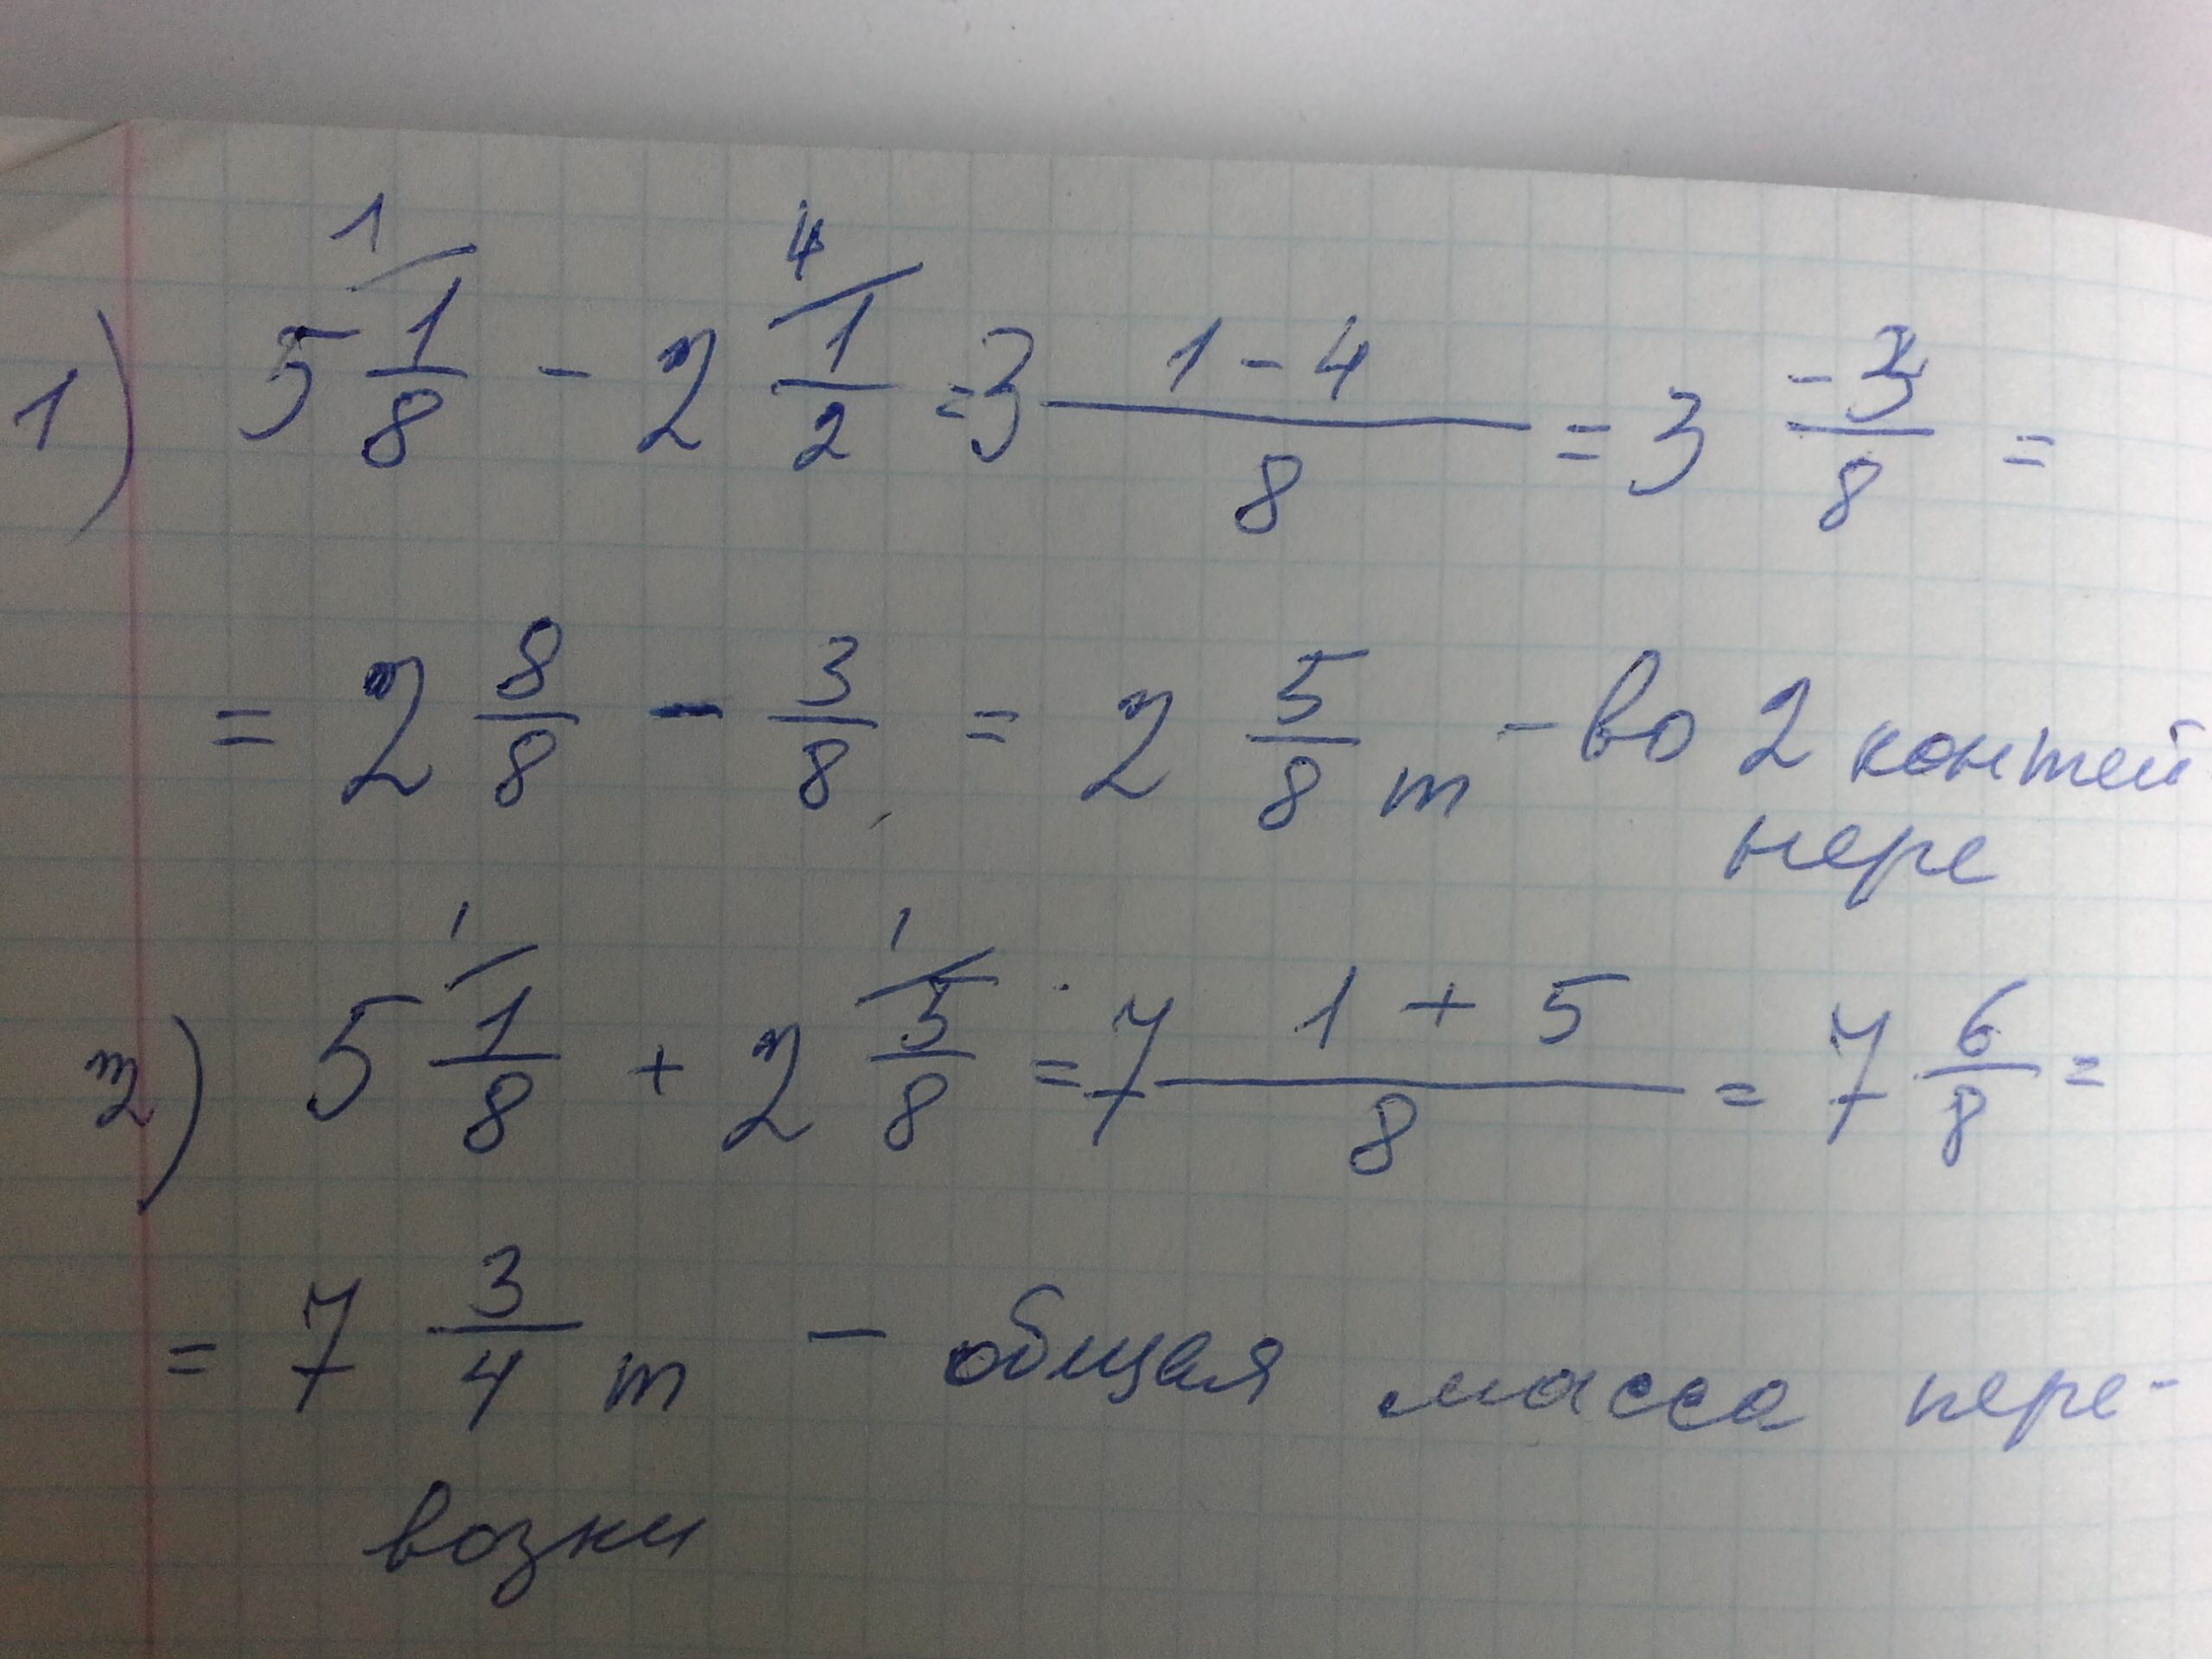 1) 5 1/8 - 2 1/2 = 3 (1 - 4)/8 = 3 -3/8 =
= 2 8/8 - 3/8 = 2 5/8 т - во 2 контей
нере
2) 5 1/8 + 2 5/8 = 7 (1 + 5)/8 = 7 6/8 =
= 7 3/4 т - общая масса пере-
возки